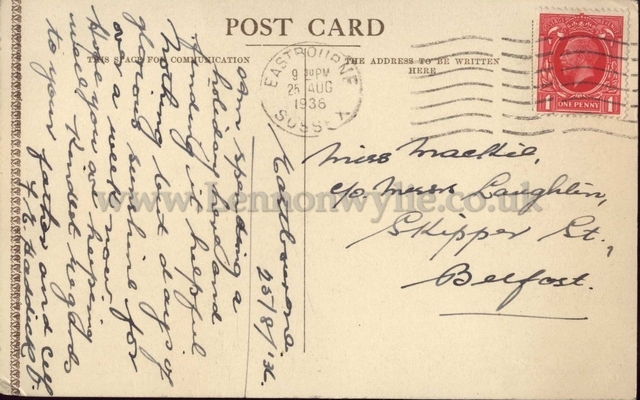 POST CARD
THIS SPACE FOR COMMUNICATION
THE ADDRESS TO BE WRITTEN
HERE
EASTBOURNE
9 PM
25 AUG
1936
SUSSEX
1 ONE PENNY 1
Eastbourne
25/8/'36.
am spending a
holiday here and
finding it helpful
Nothing but days of
glorious sunshine for
over a week now.
Hope you are keeping
well. Kindest regards
to your father and all
Miss Mackie,
c/o Messrs Laughlin,
Skipper St.,
Belfast.
www.Lennonwylie.co.uk